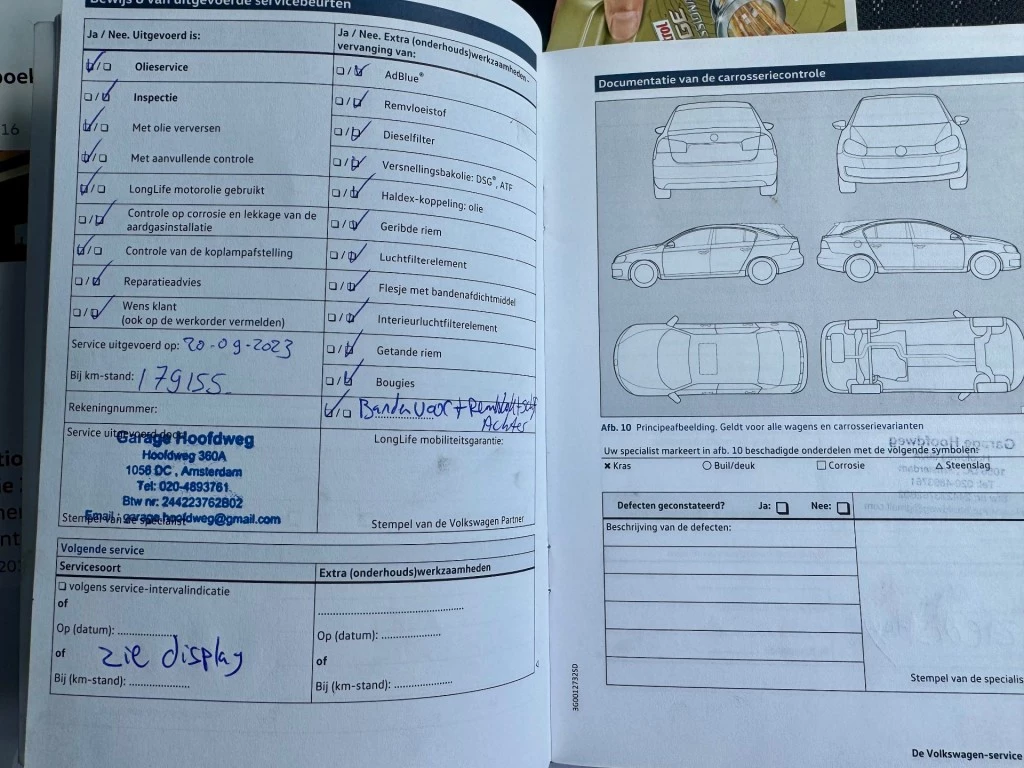 Bewijs van uitgevoerde servicebeurten
Ja / Nee. Uitgevoerd is:
Olieservice
Inspectie
Met olie verversen
Met aanvullende controle
LongLife motorolie gebruikt
Controle op corrosie en lekkage van de
aardgasinstallatie
Controle van de koplampafstelling
Reparatieadvies
Wens klant
(ook op de werkorder vermelden)
Service uitgevoerd op: 20-09-2023
Bij km-stand: 179155
Rekeningnummer:
Service uitgevoerd door:
Garage Hoofdweg
Hoofdweg 360A
1056 DC , Amsterdam
Tel: 020-4893761
Btw nr: 244223762B02
Email : garage.hoofdweg@gmail.com
Stempel van de specialist
Ja / Nee. Extra (onderhouds)werkzaamheden -
vervanging van:
AdBlue®
Remvloeistof
Dieselfilter
Versnellingsbakolie: DSG®, ATF
Haldex-koppeling: olie
Geribde riem
Luchtfilterelement
Flesje met bandenafdichtmiddel
Interieurluchtfilterelement
Getande riem
Bougies
Banden voor +
Achter
LongLife mobiliteitsgarantie:
Stempel van de Volkswagen Partner
Volgende service
Servicesoort
volgens service-intervalindicatie
of
Op (datum): ..................
of zie display
Bij (km-stand): ....................
Extra (onderhouds)werkzaamheden
Op (datum): ....................
of
Bij (km-stand): ....................
Documentatie van de carrosseriecontrole
Afb. 10 Principeafbeelding. Geldt voor alle wagens en carrosserievarianten
Uw specialist markeert in afb. 10 beschadigde onderdelen met de volgende symbolen:
Kras Buil/deuk Corrosie Steenslag
Defecten geconstateerd? Ja: Nee:
Beschrijving van de defecten:
Stempel van de specialis
3G0012732SD
De Volkswagen-service